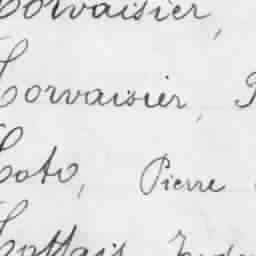 Corvaisier,
Corvaisier,
Coto, Pierre
Cottais